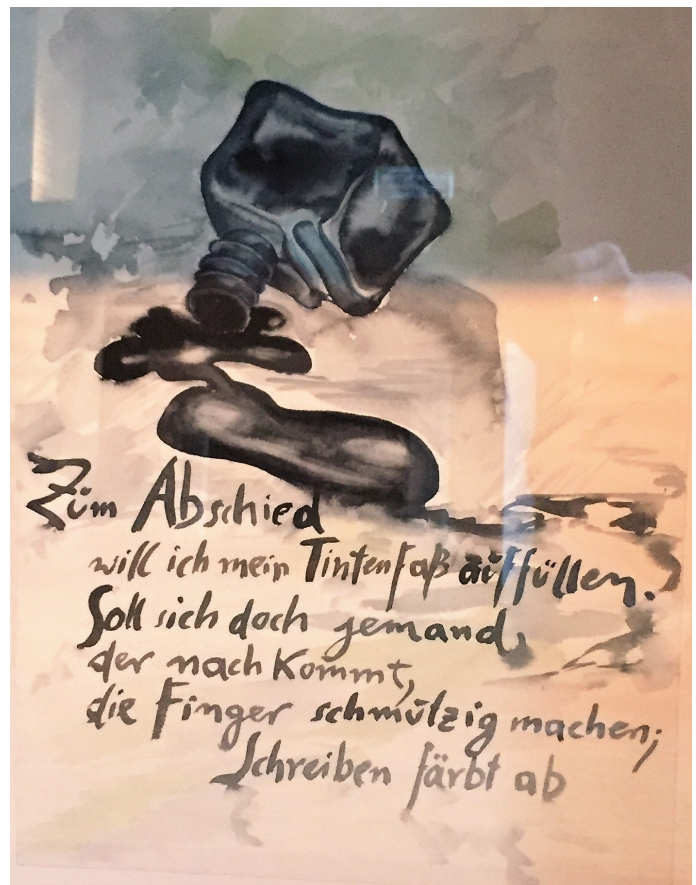 Zum Abschied
will ich mein Tintenfaß auffüllen.
Soll sich doch jemand,
der nach kommt,
die Finger schmutzig machen;
Schreiben färbt ab